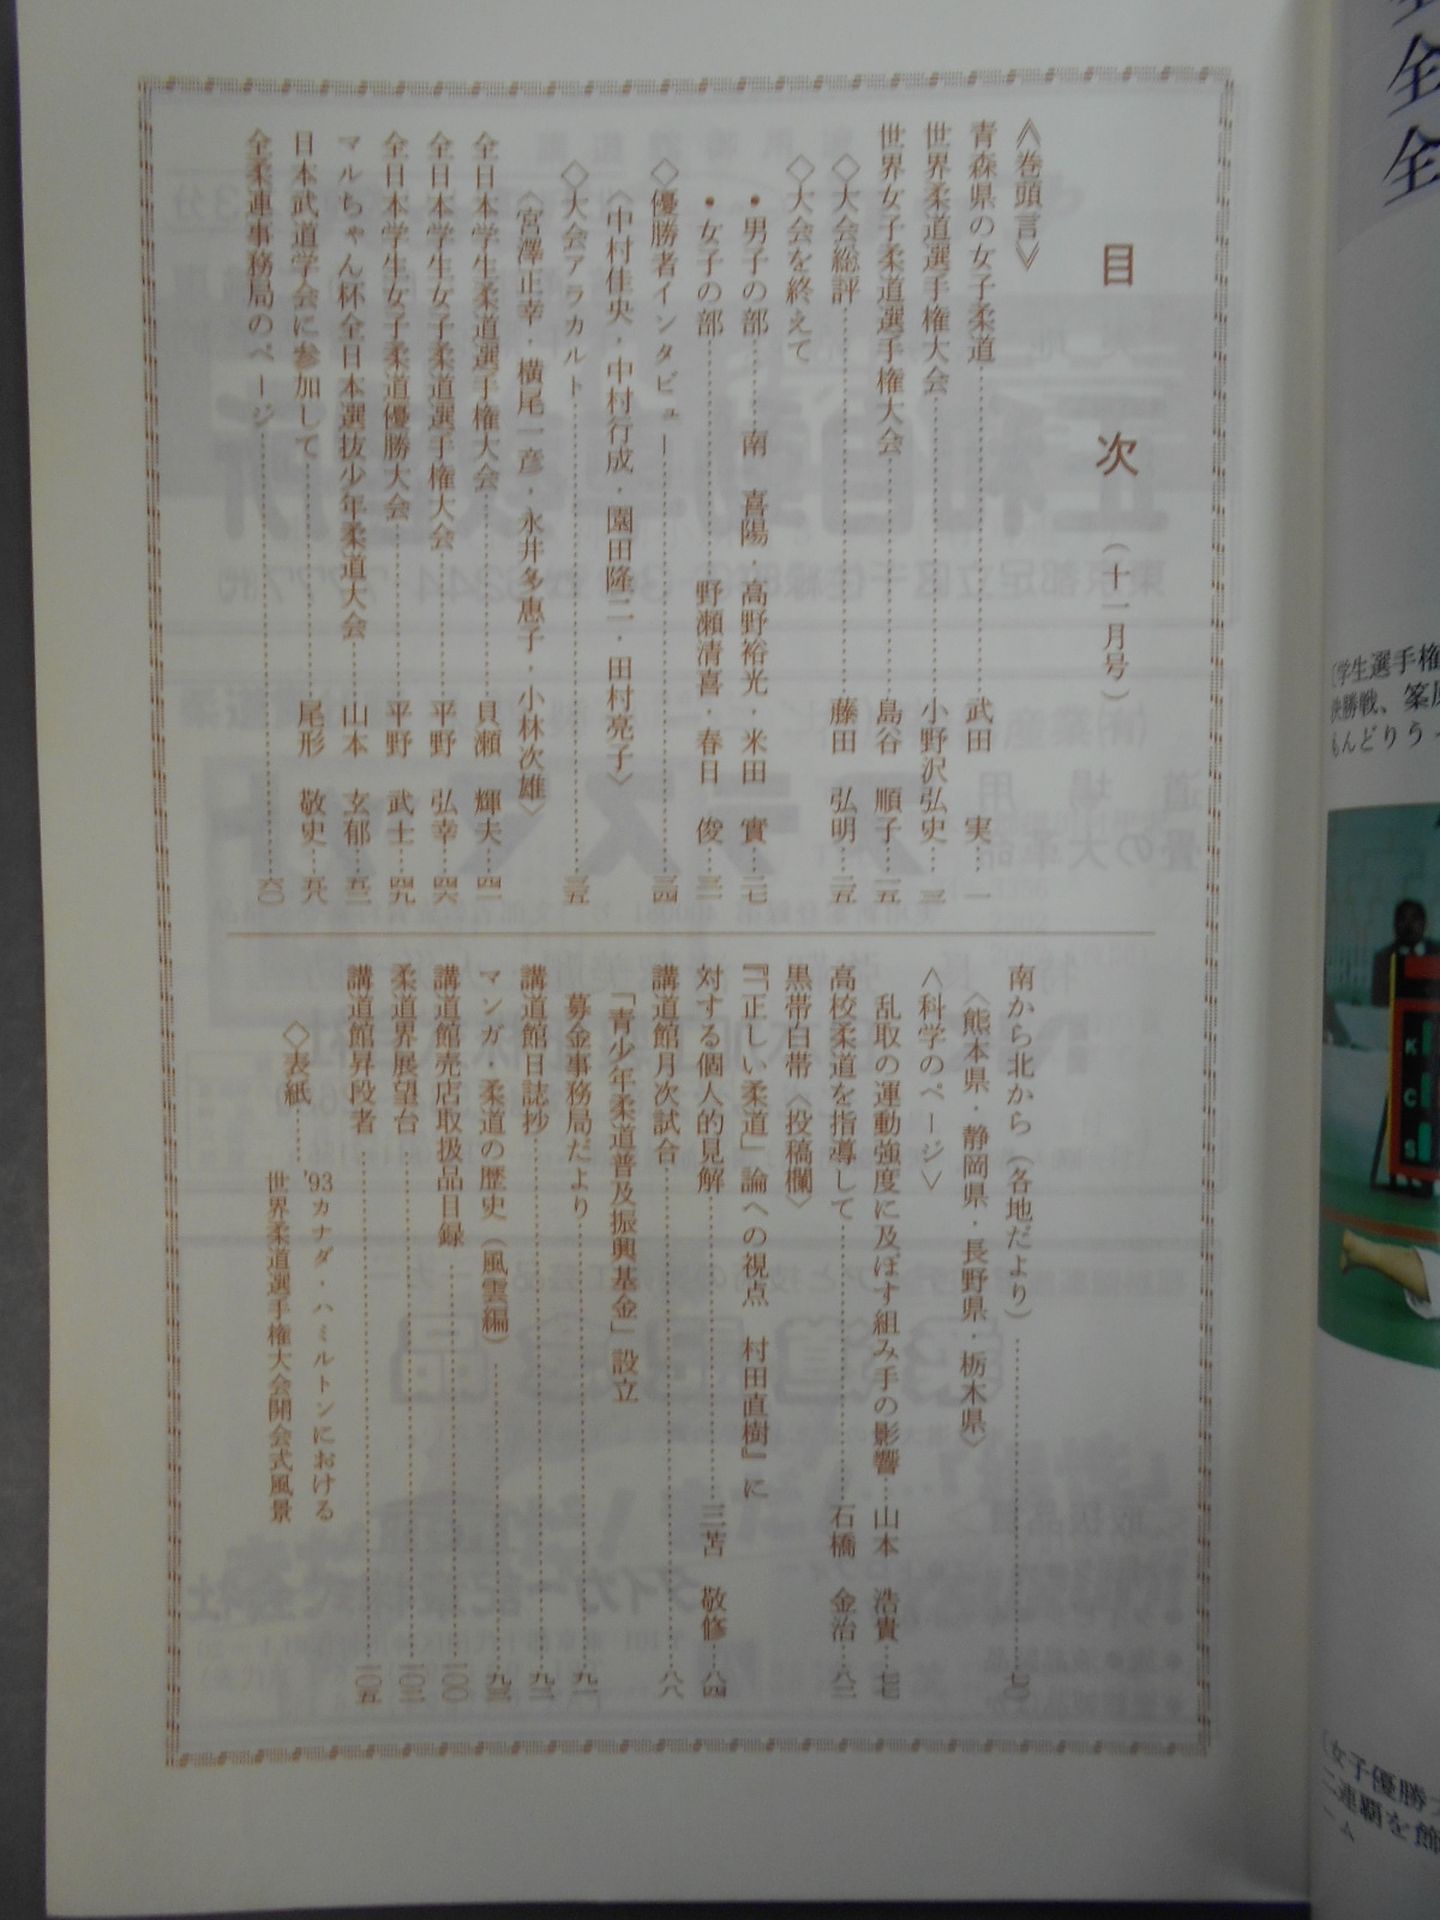 目次（十一月号）
《巻頭言》
青森県の女子柔道……武田　実…一
世界柔道選手権大会……小野沢弘史…三
世界女子柔道選手権大会……島谷　順子…一五
◇大会総評……藤田　弘明…二五
◇大会を終えて
・男子の部……南　喜陽・高野裕光・米田　實…二七
・女子の部……野瀬清喜・春日　俊…三一
◇優勝者インタビュー……三四
〈中村佳央・中村行成・園田隆二・田村亮子〉
◇大会アラカルト……三五
〈宮澤正幸・横尾一彦・永井多惠子・小林次雄〉
全日本学生柔道選手権大会……貝瀬　輝夫…四一
全日本学生女子柔道選手権大会……平野　弘幸…四六
全日本学生女子柔道優勝大会……平野　武士…四九
マルちゃん杯全日本選抜少年柔道大会……山本　玄郁…五三
日本武道学会に参加して……尾形　敬史…五八
全柔連事務局のページ……六〇
南から北から（各地だより）……七〇
〈熊本県・静岡県・長野県・栃木県〉
〈科学のページ〉
乱取の運動強度に及ぼす組み手の影響…山本　浩貴…七七
高校柔道を指導して……石橋　金治…八二
黒帯白帯〈投稿欄〉
『「正しい柔道」論への視点　村田直樹』に
対する個人的見解……三苫　敬修…八四
講道館月次試合……八八
「青少年柔道普及振興基金」設立
募金事務局だより……九一
講道館日誌抄……九二
マンガ・柔道の歴史（風雲編）……九三
講道館売店取扱品目録……一〇〇
柔道界展望台……一〇二
講道館昇段者……一〇五
◇表紙……'93カナダ・ハミルトンにおける
世界柔道選手権大会開会式風景
全
全
〔学生選手権
決勝戦、
もんどりうっ
〔女子優勝大
二連覇を飾